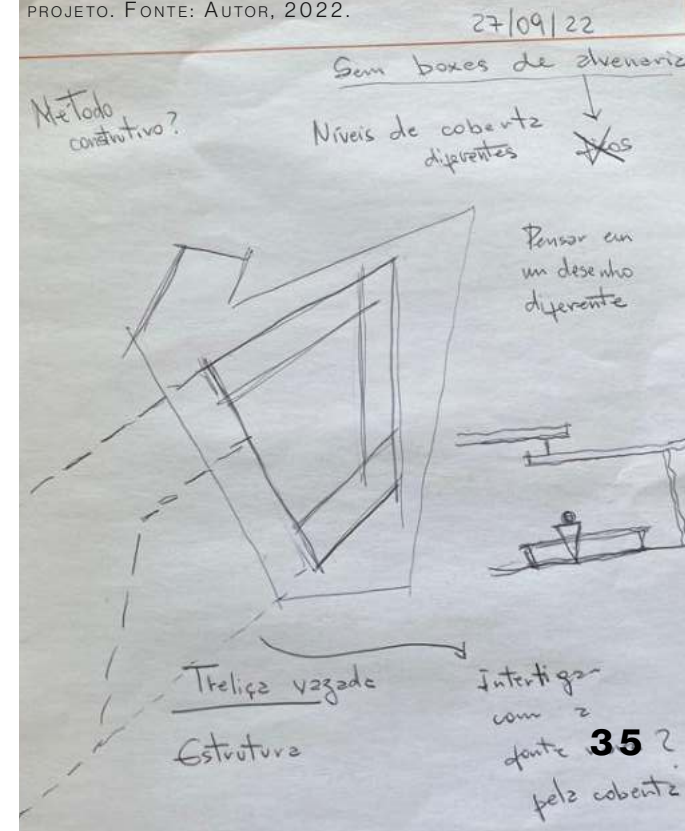 PROJETO. FONTE: AUTOR, 2022.
27/09/22
Sem boxes de alvenaria
Método
construtivo?
Níveis de coberta
diferentes
Pensar em
um desenho
diferente
Treliça vazada
Estrutura
com a
fonte ?
pela coberta
35